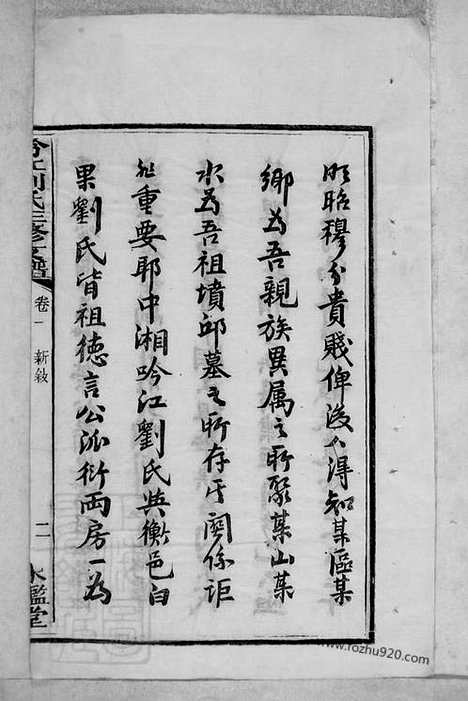 明昭穆分貴賤俾後人得知某區某
鄉為吾親族異属之所聚某山某
水為吾祖墳邱墓之所存其関係詎
非重要耶中湘吟江劉氏與衡邑白
果劉氏皆祖徳言公派衍兩房一為
吟江劉氏三修支譜
卷一
新敍
二
水鑑堂
www.rozhu920.com